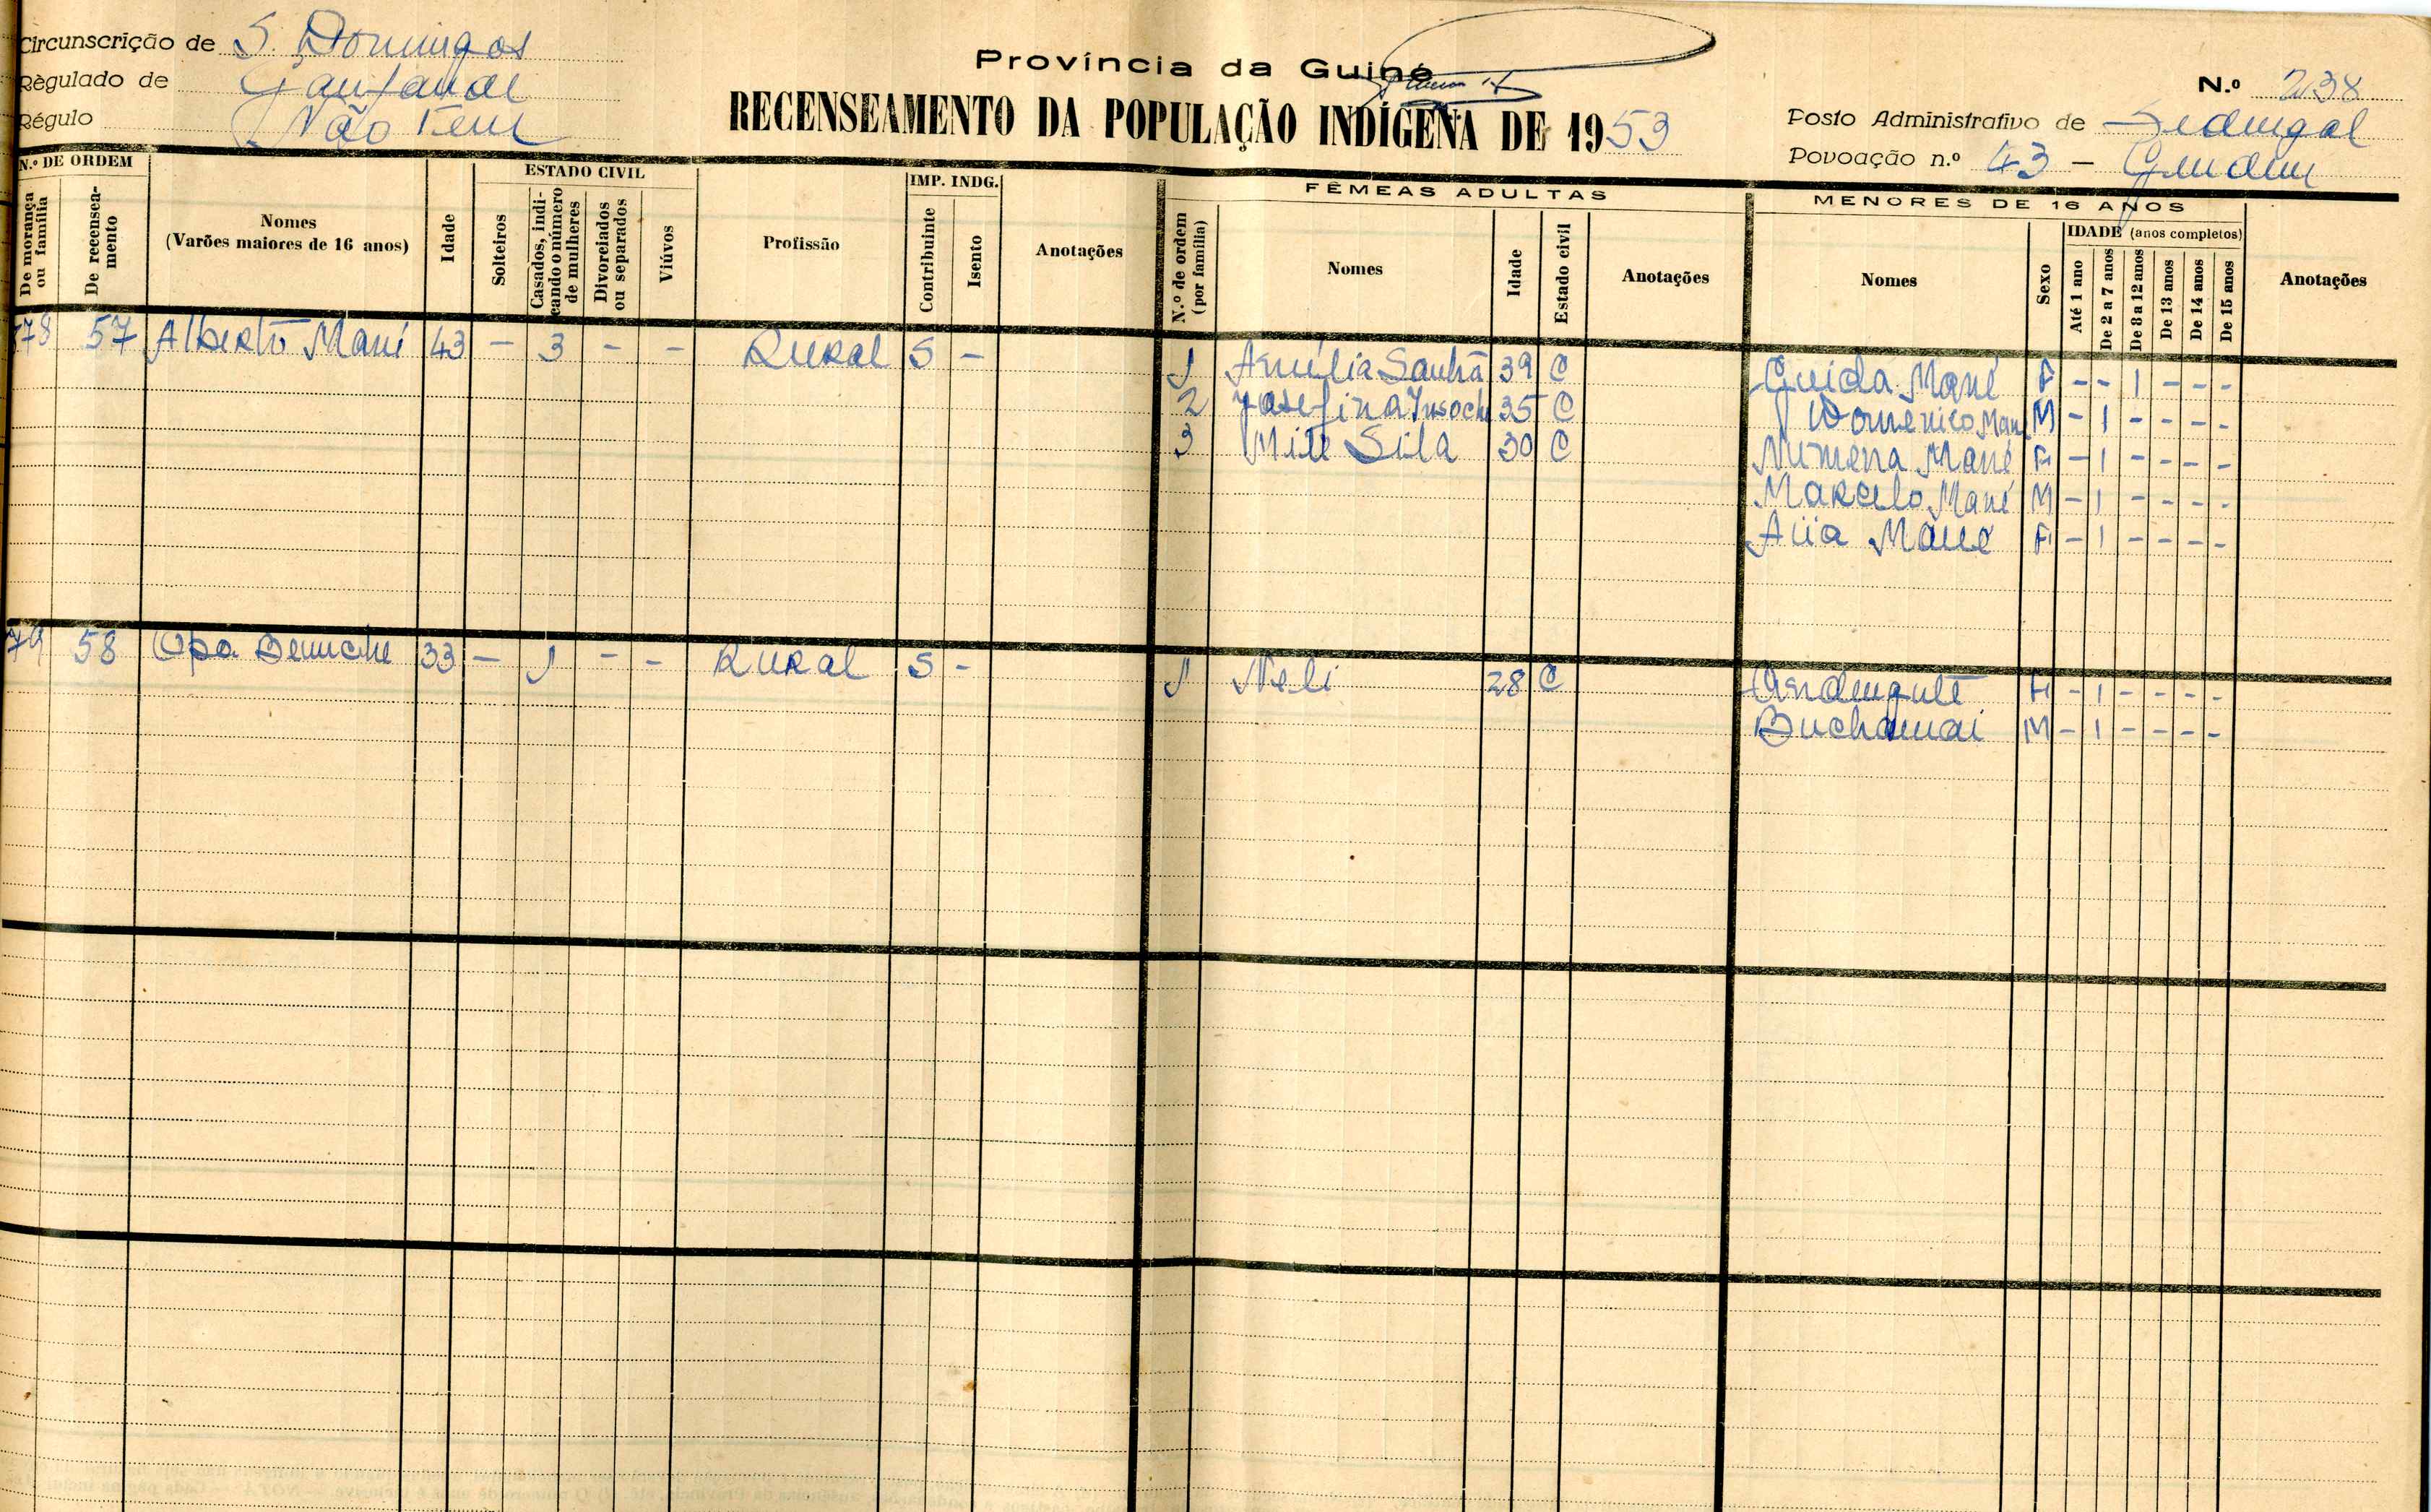 Província da Guiné
RECENSEAMENTO DA POPULAÇÃO INDÍGENA DE 1953
Circunscrição de S. Domingos
Règulado de
Régulo Não Tem
N.º 238
Posto Administrativo de Sedengal
Povoação n.º 43 -
N.º DE ORDEM
De morança ou família
De recenseamento
Nomes
(Varões maiores de 16 anos)
Idade
ESTADO CIVIL
Solteiros
Casados, indicando o número de mulheres
Divorciados ou separados
Viúvos
Profissão
IMP. INDG.
Contribuinte
Isento
Anotações
FÊMEAS ADULTAS
N.º de ordem (por família)
Nomes
Idade
Estado civil
Anotações
MENORES DE 16 ANOS
Nomes
Sexo
IDADE (anos completos)
Até 1 ano
De 2 a 7 anos
De 8 a 12 anos
De 13 anos
De 14 anos
De 15 anos
Anotações
78 57 Alberto Mané 43 - 3 - - Rural S - 1 Amélia Sanhá 39 C Guida Mané F - - 1 - - -
2 Josefina 35 C Domenico Man M - 1 - - - -
3 Mite Sila 30 C Numena Mané F - 1 - - - -
Marcelo Mané M - 1 - - - -
Mané F - 1 - - - -
79 58 Opa 33 - 1 - - Rural S - 1 Neli 28 C F - 1 - - - -
Buchamai M - 1 - - - -